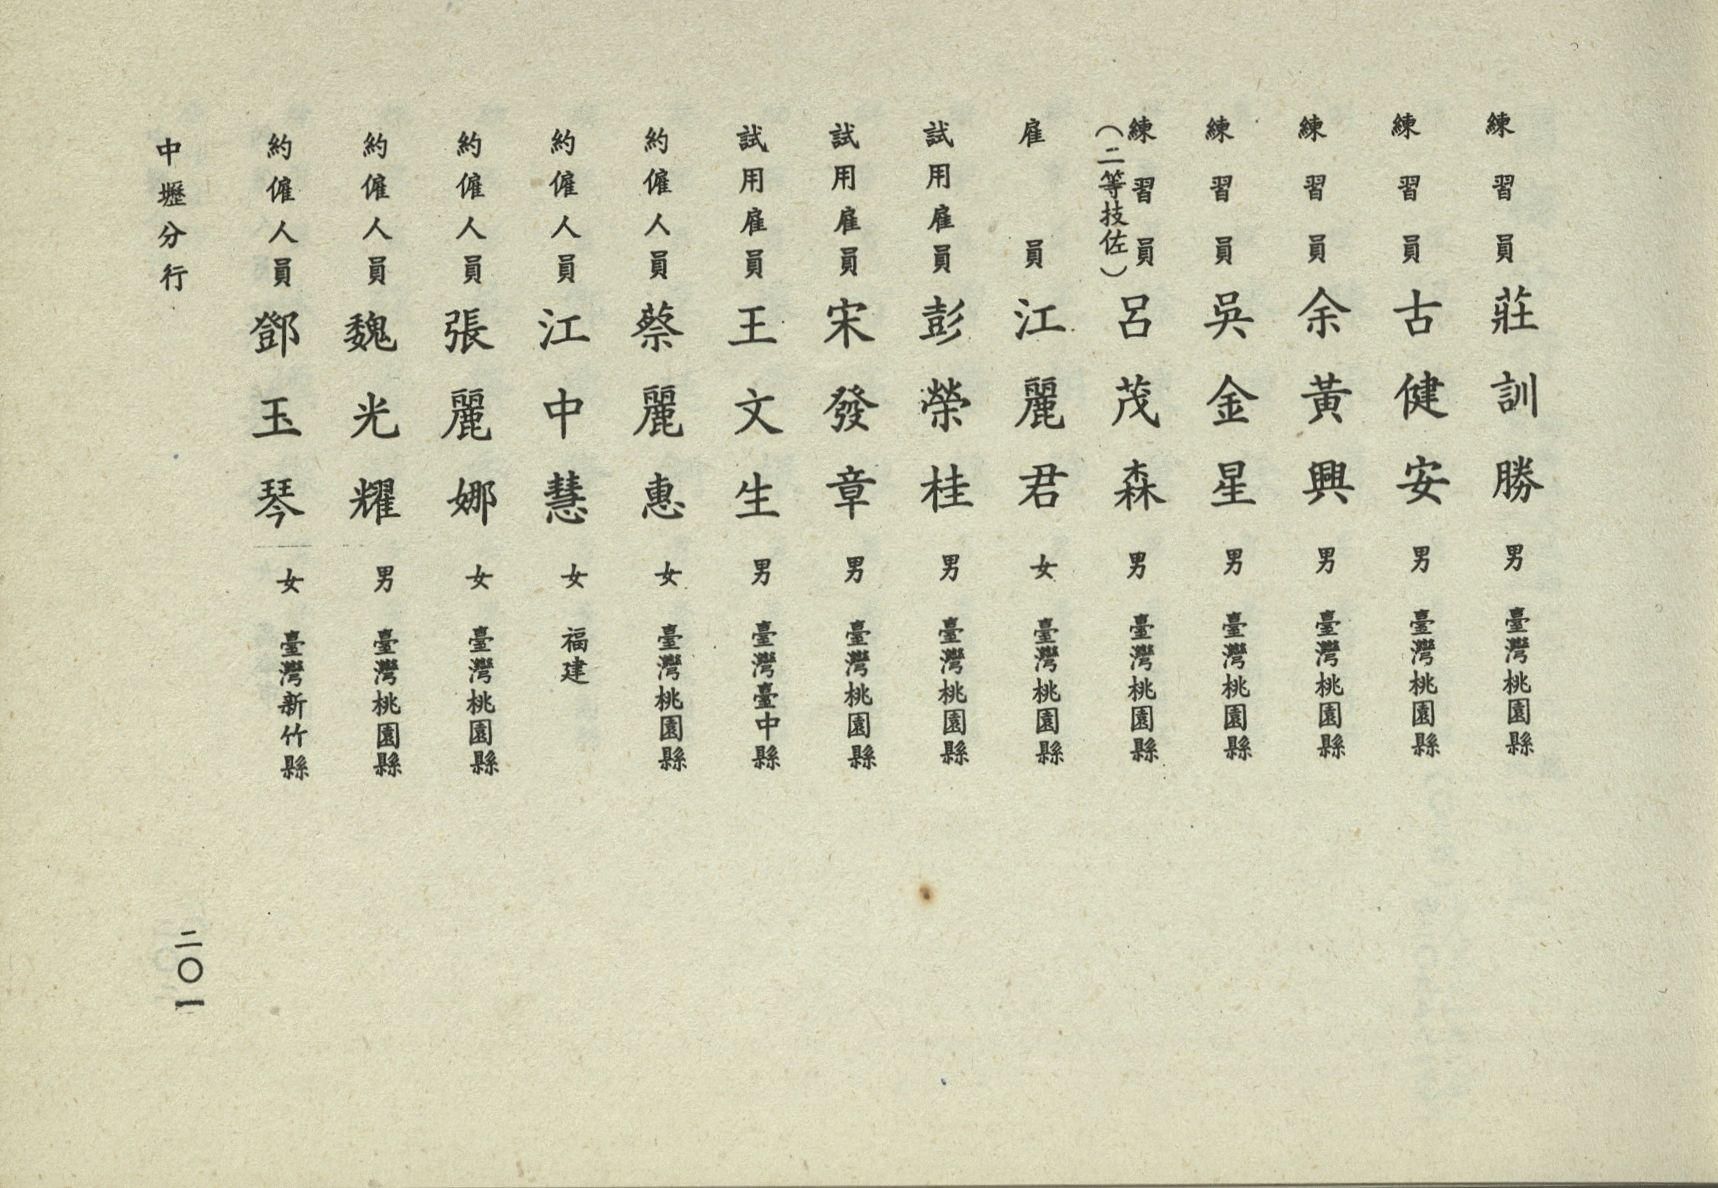 練習員 莊訓勝 男 臺灣桃園縣
練習員 古健安 男 臺灣桃園縣
練習員 余黃興 男 臺灣桃園縣
練習員 吳金星 男 臺灣桃園縣
練習員 呂茂森 男 臺灣桃園縣
(二等技佐)
雇員 江麗君 女 臺灣桃園縣
試用雇員 彭榮桂 男 臺灣桃園縣
試用雇員 宋發章 男 臺灣桃園縣
試用雇員 王文生 男 臺灣臺中縣
約僱人員 蔡麗惠 女 臺灣桃園縣
約僱人員 江中慧 女 福建
約僱人員 張麗娜 女 臺灣桃園縣
約僱人員 魏光耀 男 臺灣桃園縣
約僱人員 鄧玉琴 女 臺灣新竹縣
中壢分行
二〇一